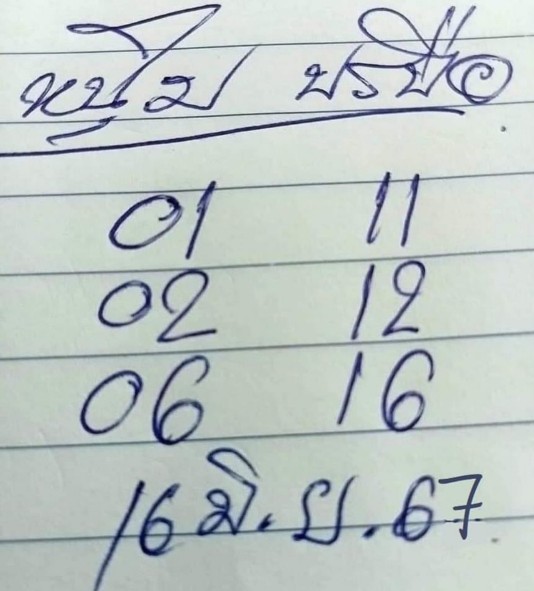 หนุ่ม
01 11
02 12
06 16
16 มิ.ย.67